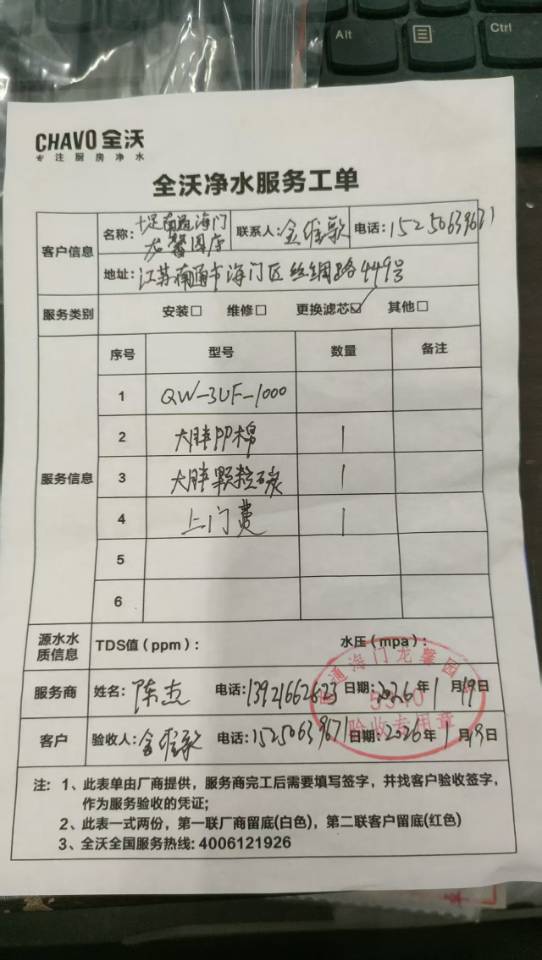 Alt
Ctrl
CHAVO 全沃
专注厨房净水
全沃净水服务工单
客户信息
名称：足南通海门
龙馨园店
联系人：金
电话：15250639671
地址：江苏南通市海门区丝绸路449号
服务类别 安装□ 维修□ 更换滤芯☑ 其他□
服务信息
序号 型号 数量 备注
1 QW-3UF-1000
2 大胖PP棉 1
3 大胖颗粒碳 1
4 上门费 1
5
6
源水水质信息 TDS值（ppm）： 水压（mpa）：
服务商 姓名：陈杰 电话：13921662623 日期：2026年1月19日
客户 验收人：金 电话：15250639671 日期：2026年1月19日
通海门龙馨园
验收专用章
注：1、此表单由厂商提供，服务商完工后需要填写签字，并找客户验收签字，
作为服务验收的凭证；
2、此表一式两份，第一联厂商留底(白色)，第二联客户留底(红色)
3、全沃全国服务热线：4006121926